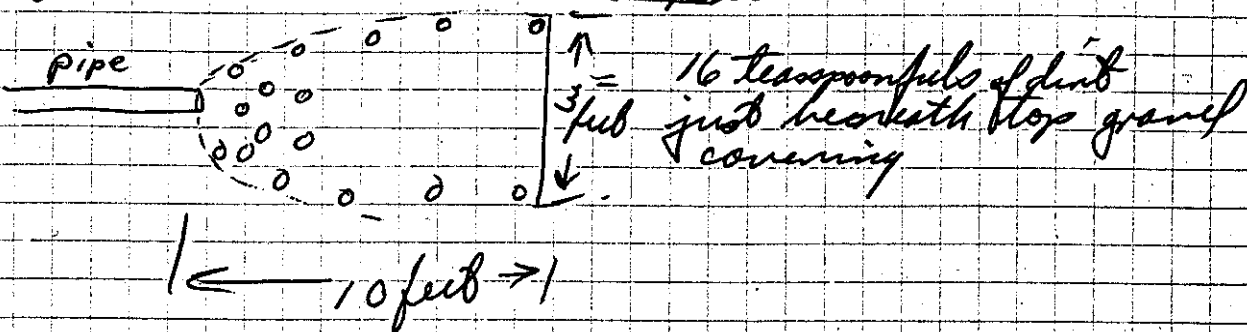 pipe
16 teasspoonfuls of dirt
3 feet just beneath top gravel
covering
10 feet